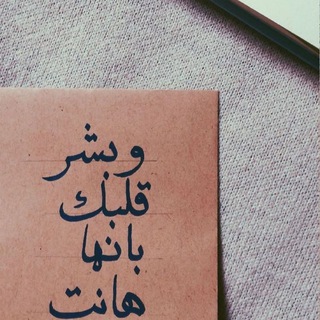 وبشر
قلبك
بانها
هانت